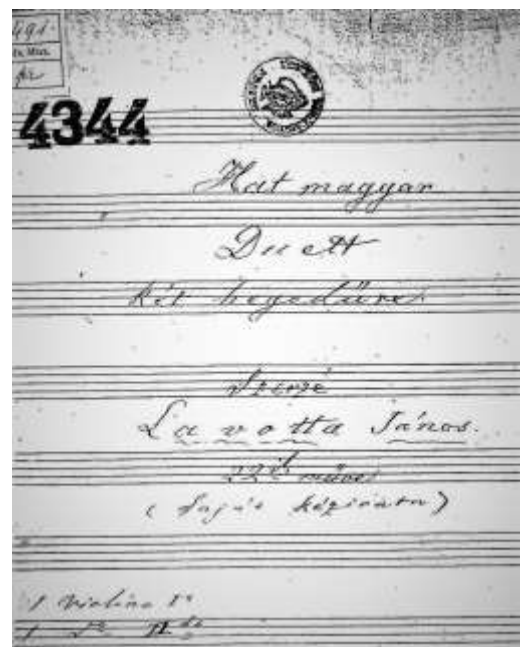 491.
4344
Hat magyar
Duett
két hegedűre
Szerzé
Lavotta János.
22ik műve
(Saját kézirata)
1 Violino 1o
1 do IIdo